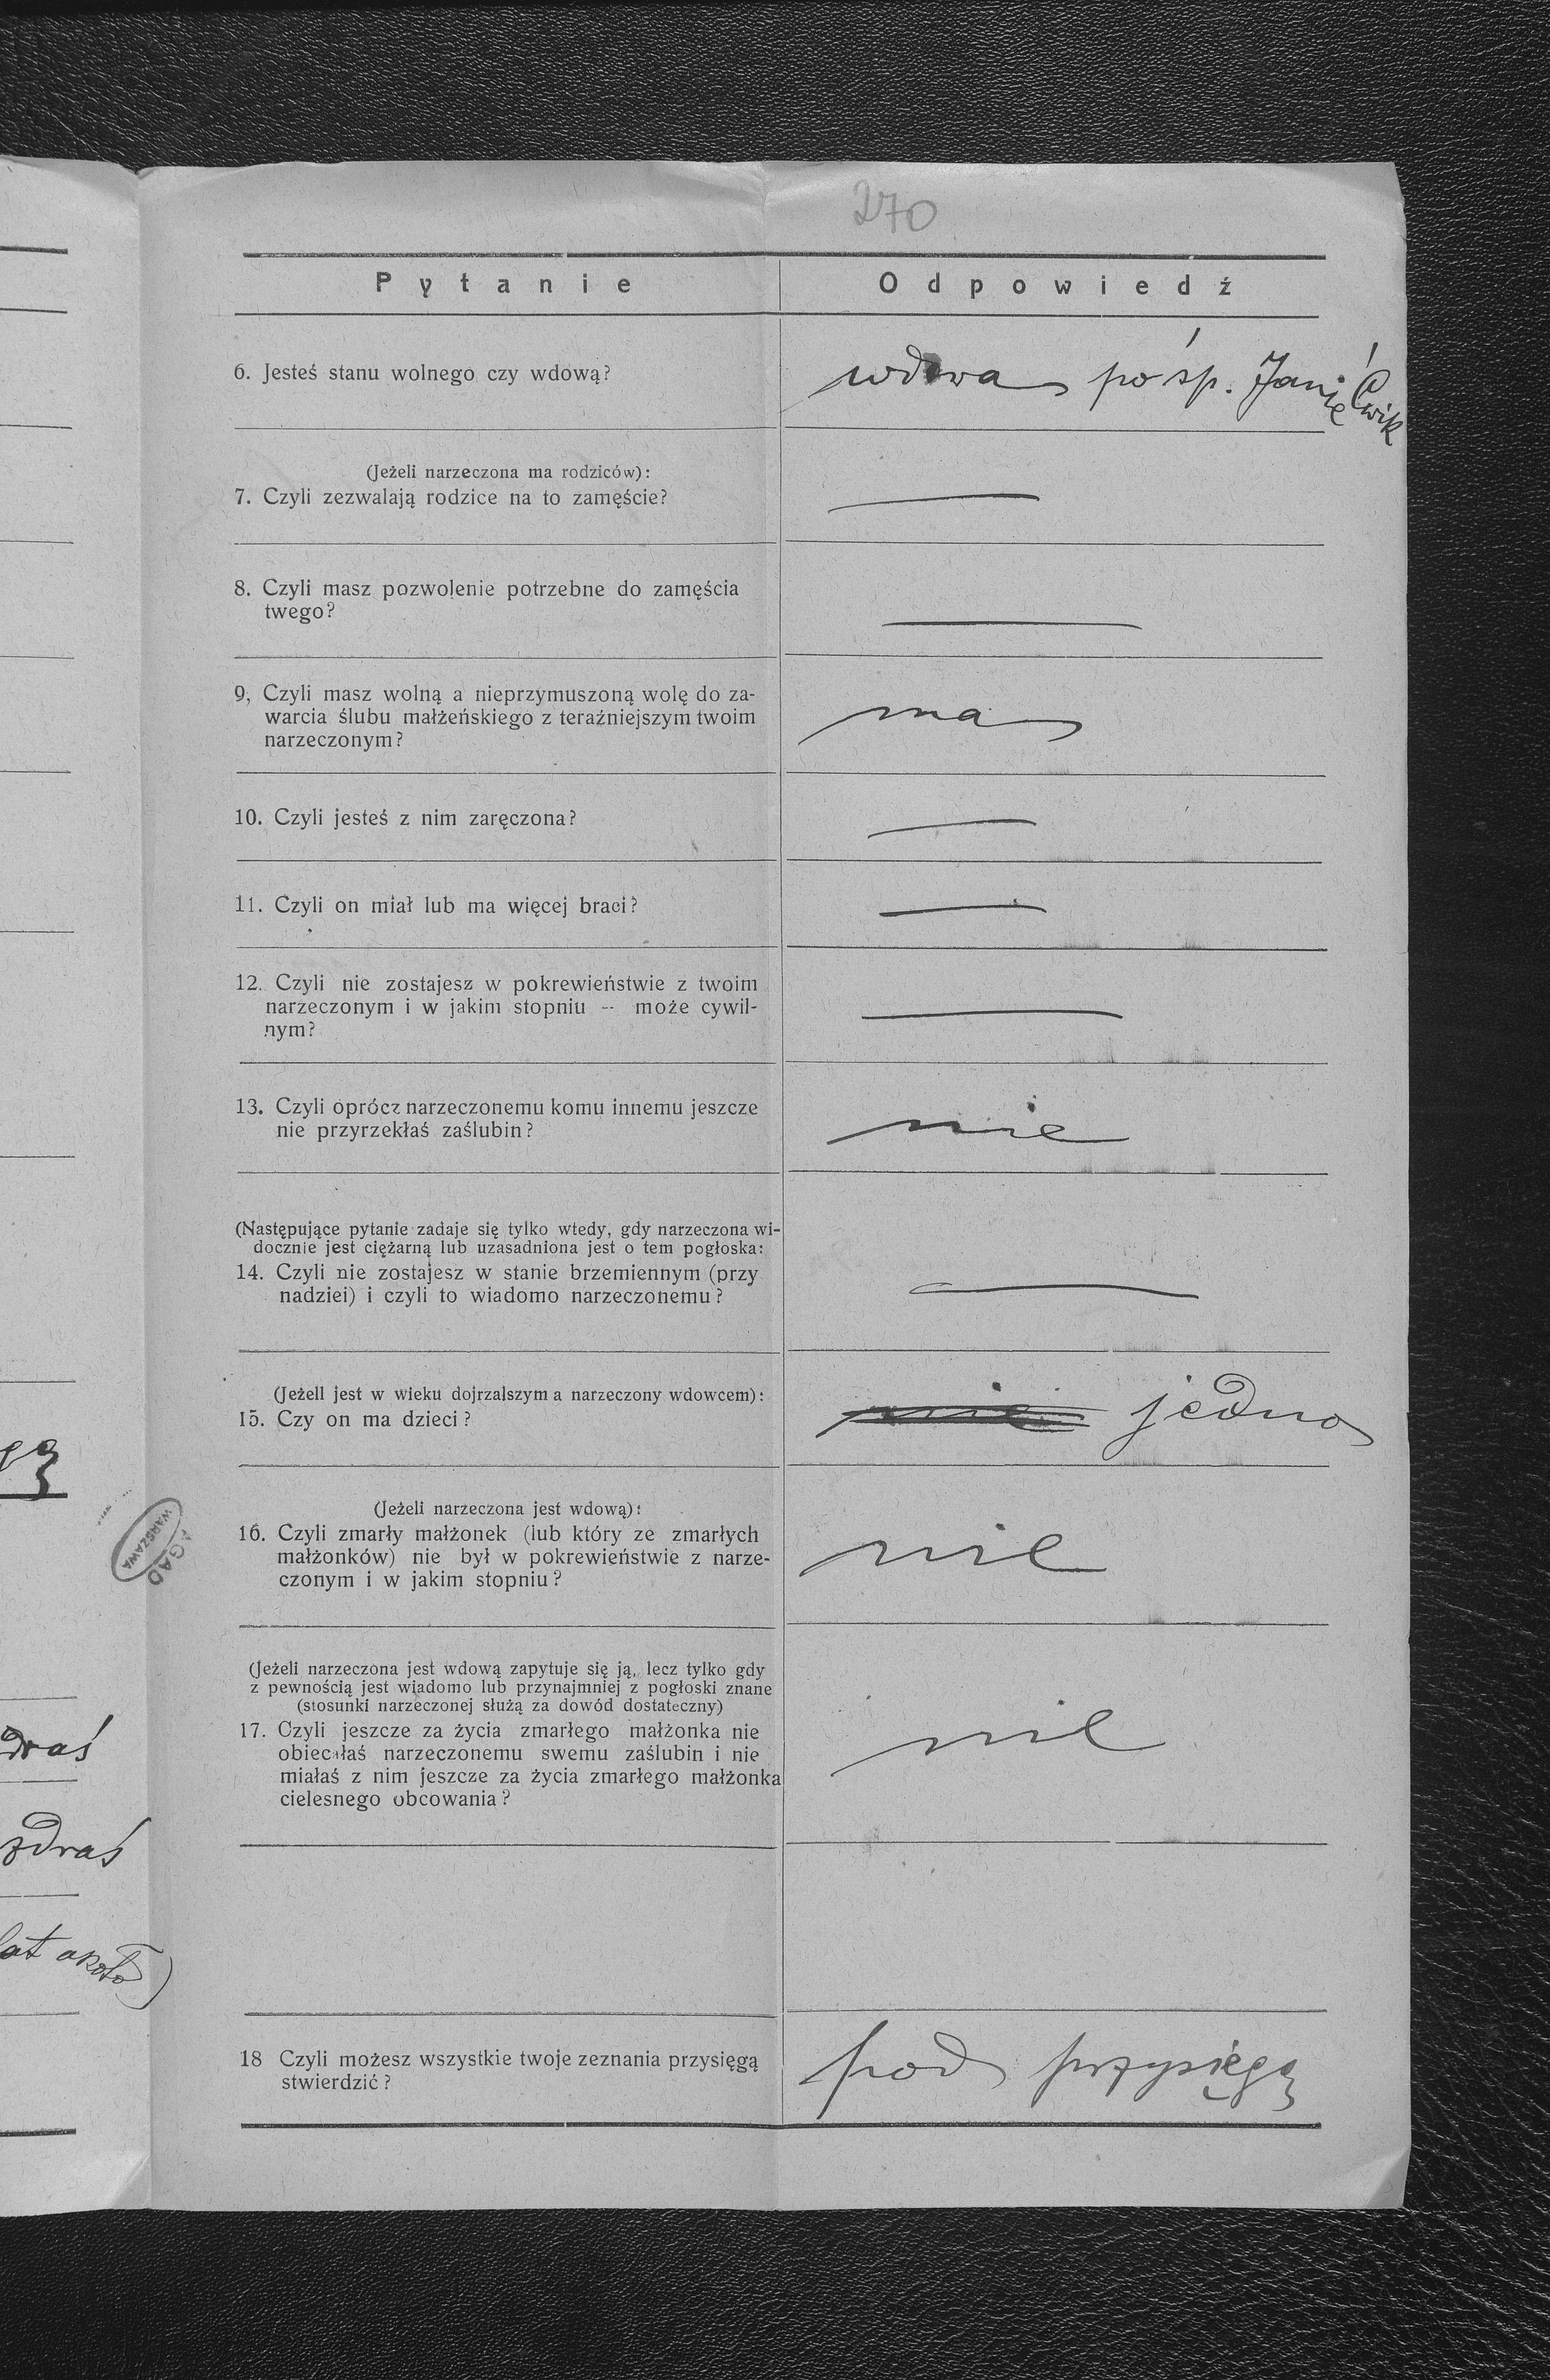 270
Pytanie Odpowiedź
6. Jesteś stanu wolnego czy wdową? wdowa po śp. Janie Ćwik
(Jeżeli narzeczona ma rodziców):
7. Czyli zezwalają rodzice na to zamęście? —
8. Czyli masz pozwolenie potrzebne do zamęścia
twego? —
9, Czyli masz wolną a nieprzymuszoną wolę do za-
warcia ślubu małżeńskiego z teraźniejszym twoim
narzeczonym? ma
10. Czyli jesteś z nim zaręczona? —
11. Czyli on miał lub ma więcej braci? —
12. Czyli nie zostajesz w pokrewieństwie z twoim
narzeczonym i w jakim stopniu -- może cywil-
nym? —
13. Czyli oprócz narzeczonemu komu innemu jeszcze
nie przyrzekłaś zaślubin? nie
(Następujące pytanie zadaje się tylko wtedy, gdy narzeczona wi-
docznie jest ciężarną lub uzasadniona jest o tem pogłoska:
14. Czyli nie zostajesz w stanie brzemiennym (przy
nadziei) i czyli to wiadomo narzeczonemu? —
(Jeżeli jest w wieku dojrzalszym a narzeczony wdowcem):
15. Czy on ma dzieci? nie jedno
(Jeżeli narzeczona jest wdową):
16. Czyli zmarły małżonek (lub który ze zmarłych
małżonków) nie był w pokrewieństwie z narze-
czonym i w jakim stopniu? nie
(Jeżeli narzeczona jest wdową zapytuje się ją, lecz tylko gdy
z pewnością jest wiadomo lub przynajmniej z pogłoski znane
(stosunki narzeczonej służą za dowód dostateczny)
17. Czyli jeszcze za życia zmarłego małżonka nie
obiecałaś narzeczonemu swemu zaślubin i nie
miałaś z nim jeszcze za życia zmarłego małżonka
cielesnego obcowania? nie
18 Czyli możesz wszystkie twoje zeznania przysięgą
stwierdzić? pod przysięgą
AGAD
WARSZAWA
lat około)